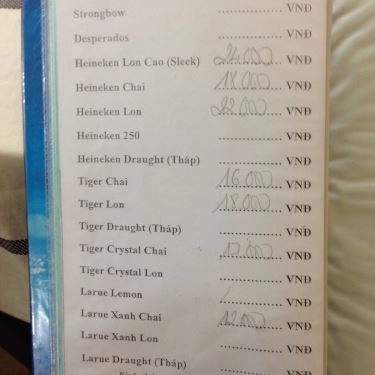 Strongbow .................. VNĐ
Desperados .................. VNĐ
Heineken Lon Cao (Sleek) 24.000 VNĐ
Heineken Chai 18.000 VNĐ
Heineken Lon 22.000 VNĐ
Heineken 250 .................. VNĐ
Heineken Draught (Tháp) .................. VNĐ
Tiger Chai 16.000 VNĐ
Tiger Lon 18.000 VNĐ
Tiger Draught (Tháp) .................. VNĐ
Tiger Crystal Chai 17.000 VNĐ
Tiger Crystal Lon .................. VNĐ
Larue Lemon .................. VNĐ
Larue Xanh Chai 12.000 VNĐ
Larue Xanh Lon .................. VNĐ
Larue Draught (Tháp) .................. VNĐ